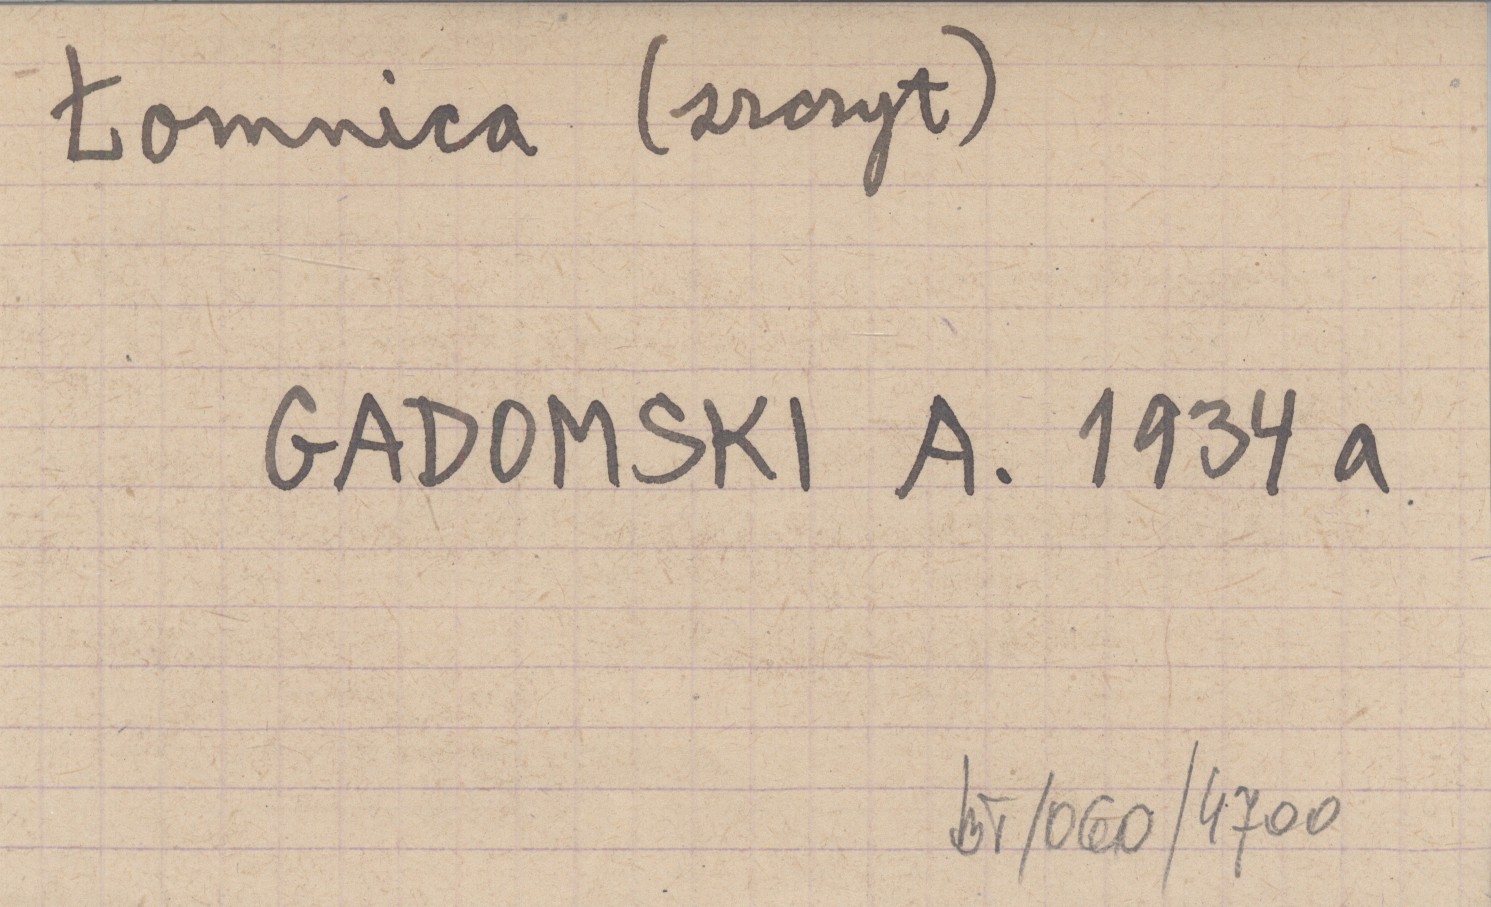 Łomnica (szczyt)
GADOMSKI A. 1934 a
/060/4700